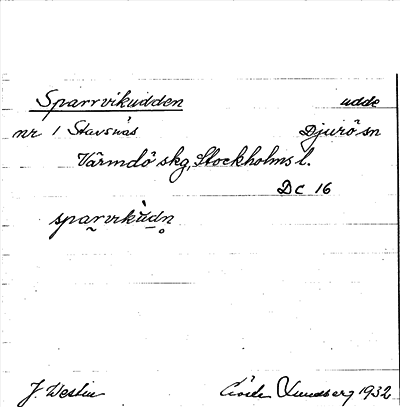 Sparrvikudden udde
nr 1 Stavsnäs Djurö sn
Värmdö skg, Stockholms l.
DC 16
sparvikùdn
J. Westin
Lundberg 1932